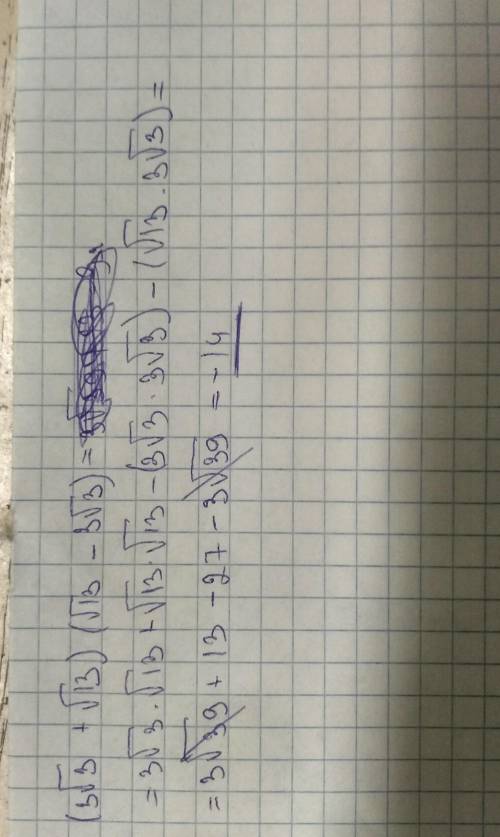 (3√3 + √13) (√13 - 3√3) =
= 3√3 · √13 + √13 · √13 - (3√3 · 3√3) - (√13 · 3√3) =
= 3√39 + 13 - 27 - 3√39 = -14